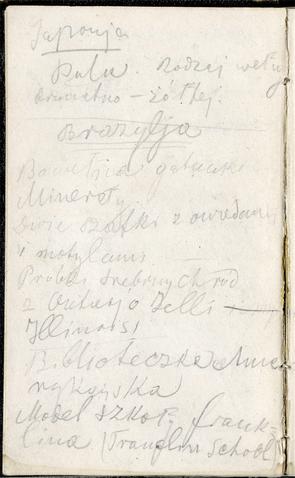 Japonja
Rodzaj wełny
czerwono – żółtej.
Brazylja
Bawełna gatunki
Minerały
Dwie szafki z owadami
i motylami
Próbki srebrnych rud
z Ontarjo
Illinois
Biblioteczka Ame
rykańska
Model szkoły Frank-
lina (Franglin School)